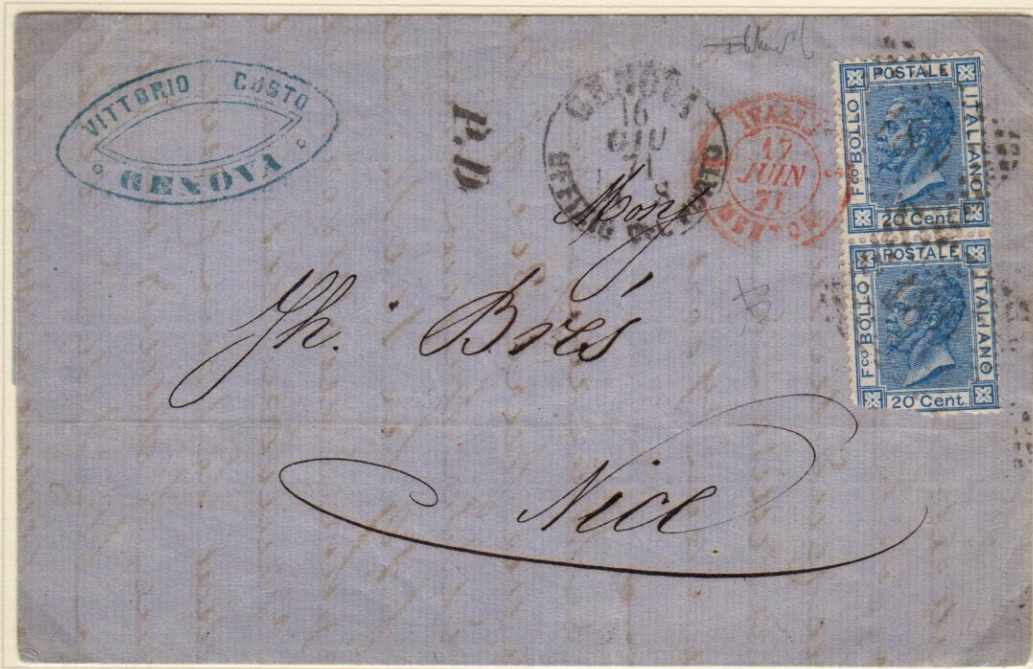 VITTORIO CUSTO
GENOVA
P.D.
GENOVA
16
GIU
71
ITALIE
17
JUIN
71
POSTALE
Fco BOLLO
ITALIANO
20 Cent.
POSTALE
Fco BOLLO
ITALIANO
20 Cent.
Monsr
Jh. Brés
Nice